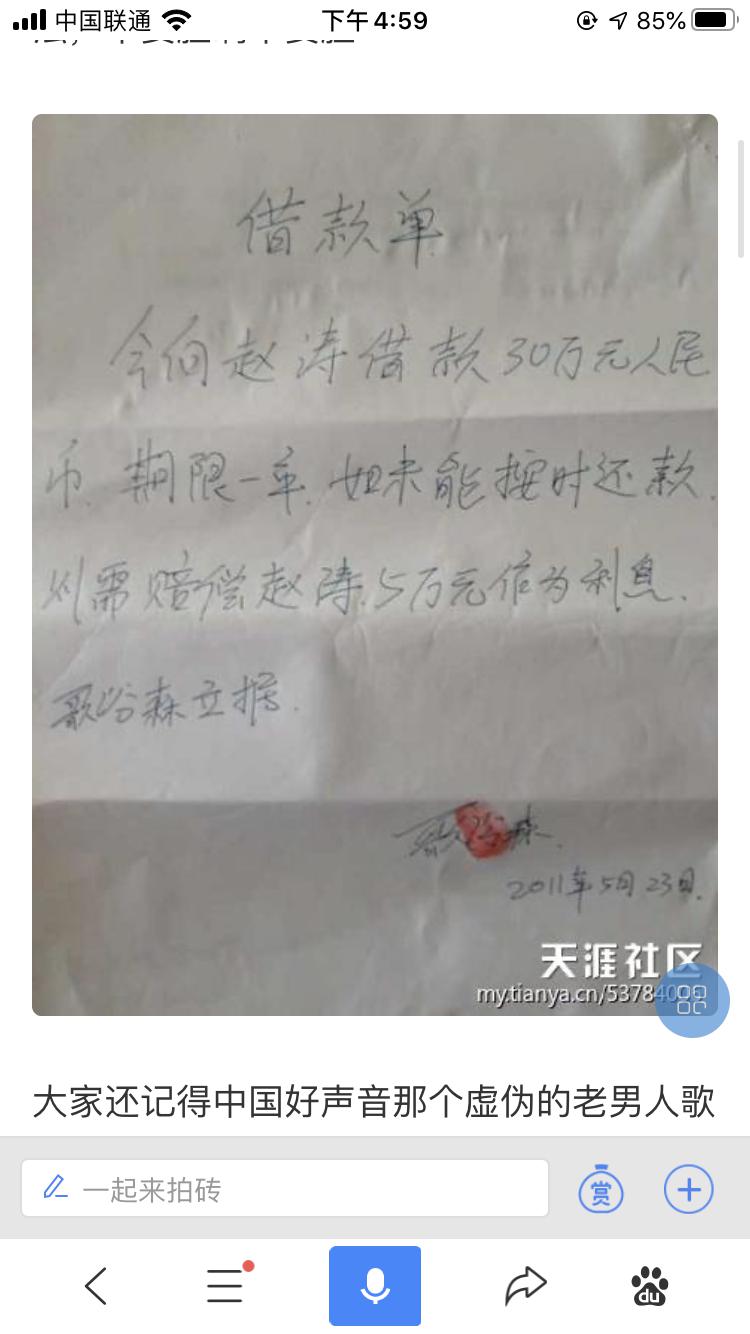 中国联通
下午4:59
85%
借款单
今向赵涛借款30万元人民
币.期限一年.如未能按时还款.
则需赔偿赵涛.5万元作为利息.
歌浴森立据.
歌浴森.
2011年5月23日.
天涯社区
my.tianya.cn/53784
大家还记得中国好声音那个虚伪的老男人歌
一起来拍砖
赏
du